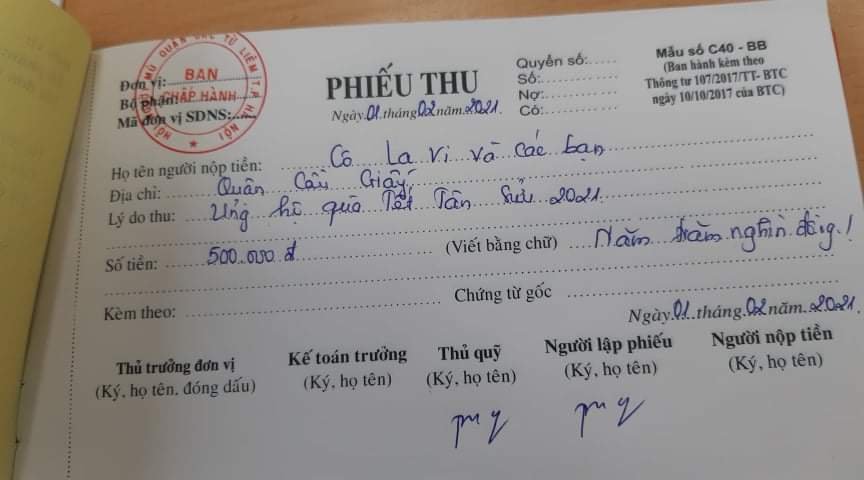 HỘI NGƯỜI MÙ QUẬN BẮC TỪ LIÊM T.P HÀ NỘI
BAN
CHẤP HÀNH
Đơn vị:
Bộ phận:
Mã đơn vị SDNS:
PHIẾU THU
Ngày 01 tháng 02 năm 2021
Quyển số:
Số:
Nợ:
Có:
Mẫu số C40 - BB
(Ban hành kèm theo
Thông tư 107/2017/TT- BTC
ngày 10/10/2017 của BTC)
Họ tên người nộp tiền: Cô La Vi và các bạn
Địa chỉ: Quân Cầu Giấy
Lý do thu: Ủng hộ quà Tết Tân Sửu 2021
Số tiền: 500.000 đ (Viết bằng chữ) Năm trăm nghìn đồng!
Kèm theo: Chứng từ gốc
Ngày 01 tháng 02 năm 2021
Thủ trưởng đơn vị Kế toán trưởng Thủ quỹ Người lập phiếu Người nộp tiền
(Ký, họ tên, đóng dấu) (Ký, họ tên) (Ký, họ tên) (Ký, họ tên) (Ký, họ tên)